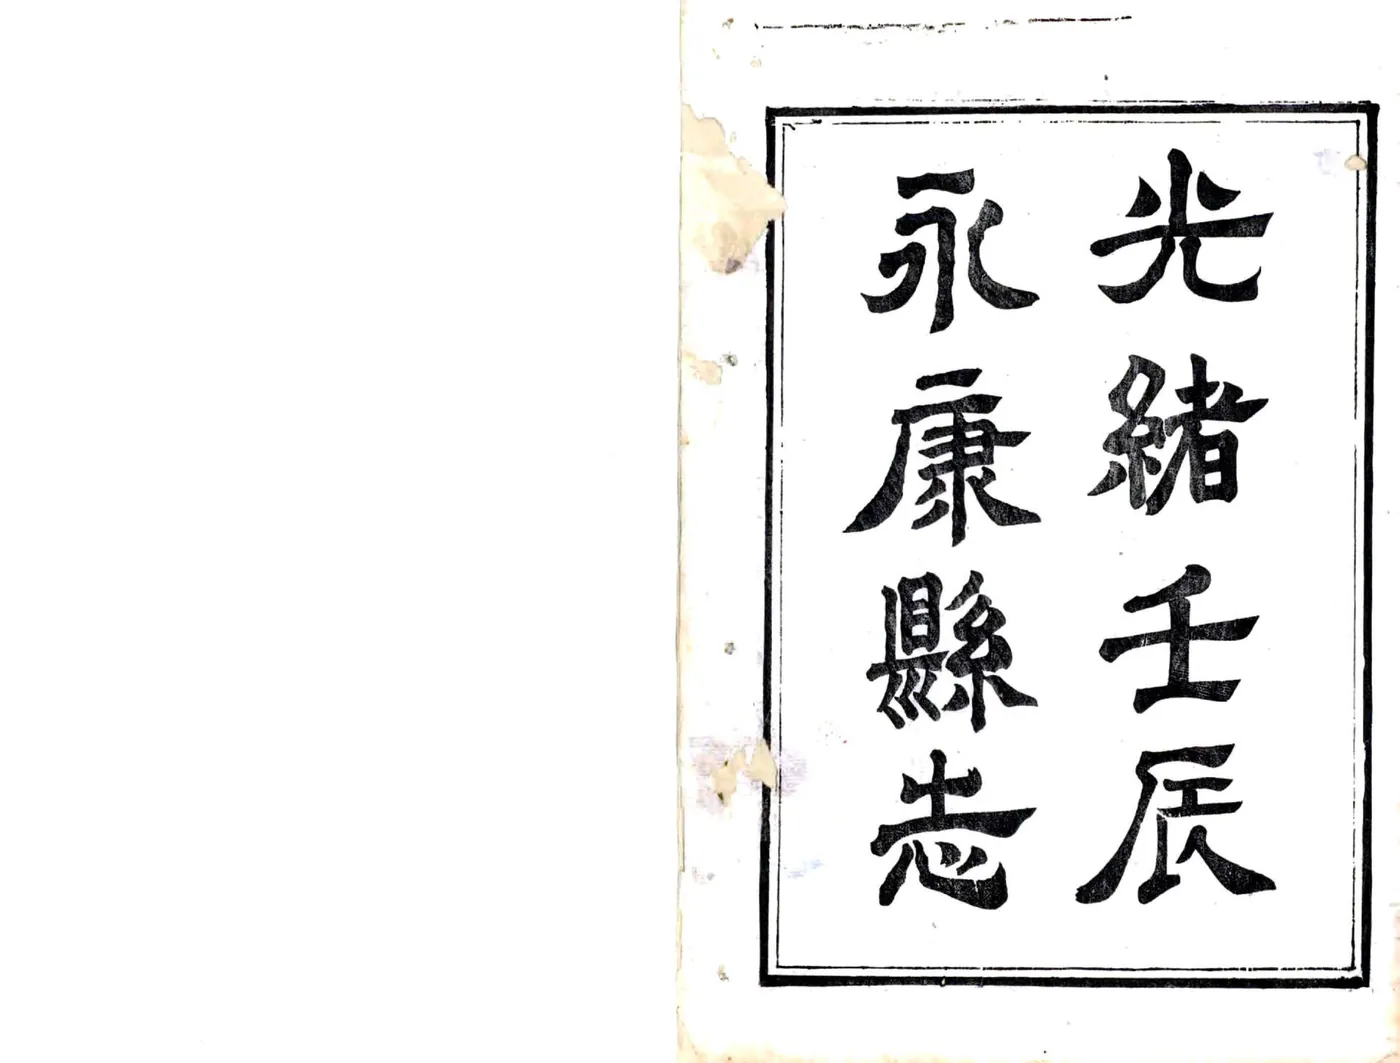 光緒壬辰
永康縣志